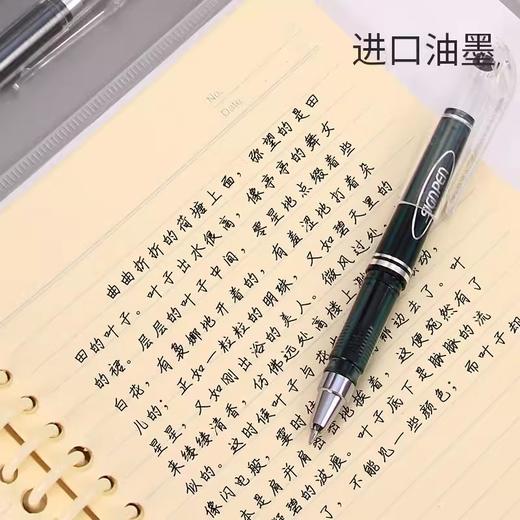 进口油墨
No.
Date.
SIGNPEN
曲曲折折的荷塘上面，弥望的是田
田的叶子。叶子出水很高，像亭亭的舞女
的裙。层层的叶子中间，零星地点缀着些
白花，有袅娜地开着的，有羞涩地打着朵
儿的；正如一粒粒的明珠，又如碧天里的
星星，又如刚出浴的美人。微风过处，
来缕缕清香，仿佛远处高楼上
似的。这时候叶子与花 动，
像闪电般，霎时 去了。叶
本是肩并肩 地挨着，这便宛然有了
碧的波痕。叶子底下是脉脉的流
了，不能见一些颜色；而叶子却